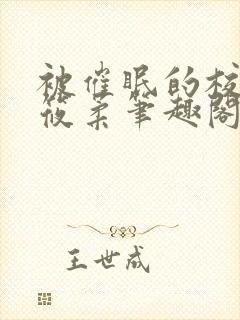 被催眠的校
筱柔笔趣阁
王世成